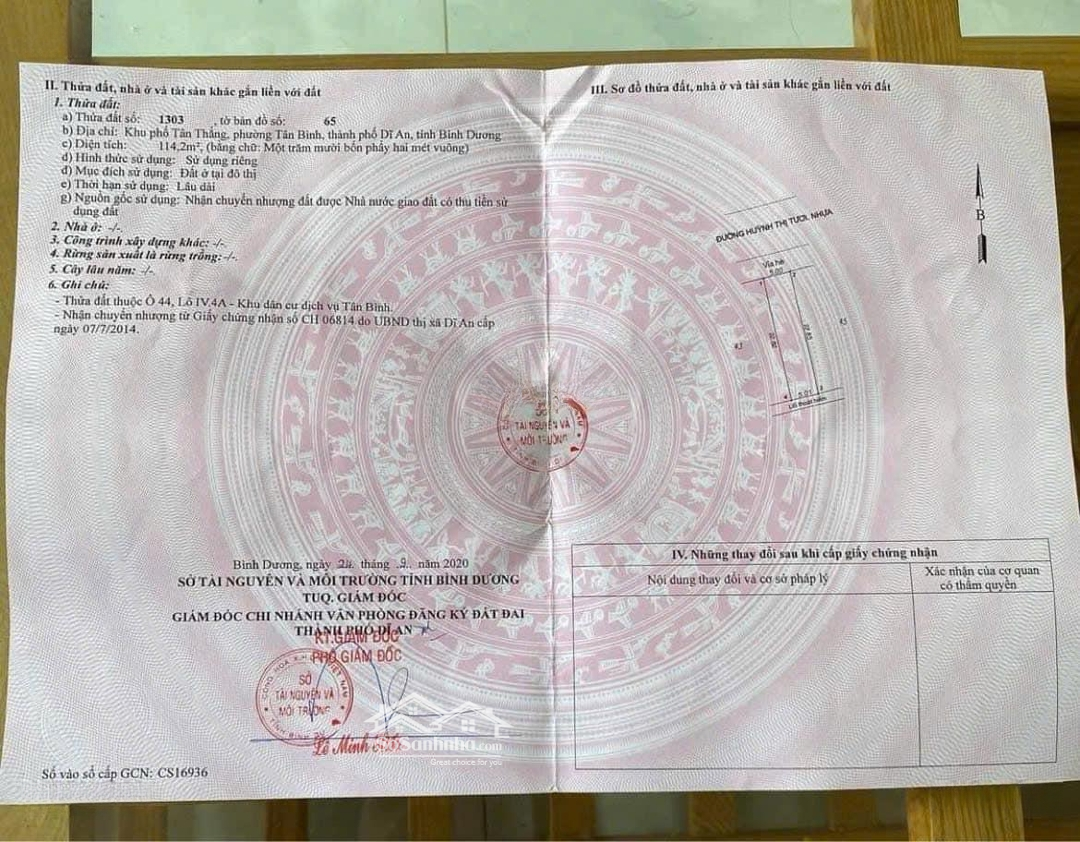 II. Thửa đất, nhà ở và tài sản khác gắn liền với đất
1. Thửa đất:
a) Thửa đất số: 1303 , tờ bản đồ số: 65
b) Địa chỉ: Khu phố Tân Thắng, phường Tân Bình, thành phố Dĩ An, tỉnh Bình Dương
c) Diện tích: 114,2m², (bằng chữ: Một trăm mười bốn phẩy hai mét vuông)
d) Hình thức sử dụng: Sử dụng riêng
đ) Mục đích sử dụng: Đất ở tại đô thị
e) Thời hạn sử dụng: Lâu dài
g) Nguồn gốc sử dụng: Nhận chuyển nhượng đất được Nhà nước giao đất có thu tiền sử
dụng đất
2. Nhà ở: -/-.
3. Công trình xây dựng khác: -/-.
4. Rừng sản xuất là rừng trồng: -/-.
5. Cây lâu năm: -/-.
6. Ghi chú:
- Thửa đất thuộc Ô 44, Lô IV.4A - Khu dân cư dịch vụ Tân Bình.
- Nhận chuyển nhượng từ Giấy chứng nhận số CH 06814 do UBND thị xã Dĩ An cấp
ngày 07/7/2014.
Bình Dương, ngày 24 tháng 9 năm 2020
SỞ TÀI NGUYÊN VÀ MÔI TRƯỜNG TỈNH BÌNH DƯƠNG
TUQ. GIÁM ĐỐC
GIÁM ĐỐC CHI NHÁNH VĂN PHÒNG ĐĂNG KÝ ĐẤT ĐAI
THÀNH PHỐ DĨ AN
KT.GIÁM ĐỐC
PHÓ GIÁM ĐỐC
SỞ
TÀI NGUYÊN VÀ
MÔI TRƯỜNG
Lê Minh
Sanhnha.com
Great choice for you
Số vào sổ cấp GCN: CS16936
TÀI NGUYÊN VÀ
MÔI TRƯỜNG
III. Sơ đồ thửa đất, nhà ở và tài sản khác gắn liền với đất
B
ĐƯỜNG HUỲNH THỊ TƯƠI, NHỰA
Vỉa hè
5.00
1
2
43
45
4
5.01
3
Lối thoát hiểm
IV. Những thay đổi sau khi cấp giấy chứng nhận
Nội dung thay đổi và cơ sở pháp lý
Xác nhận của cơ quan
có thẩm quyền